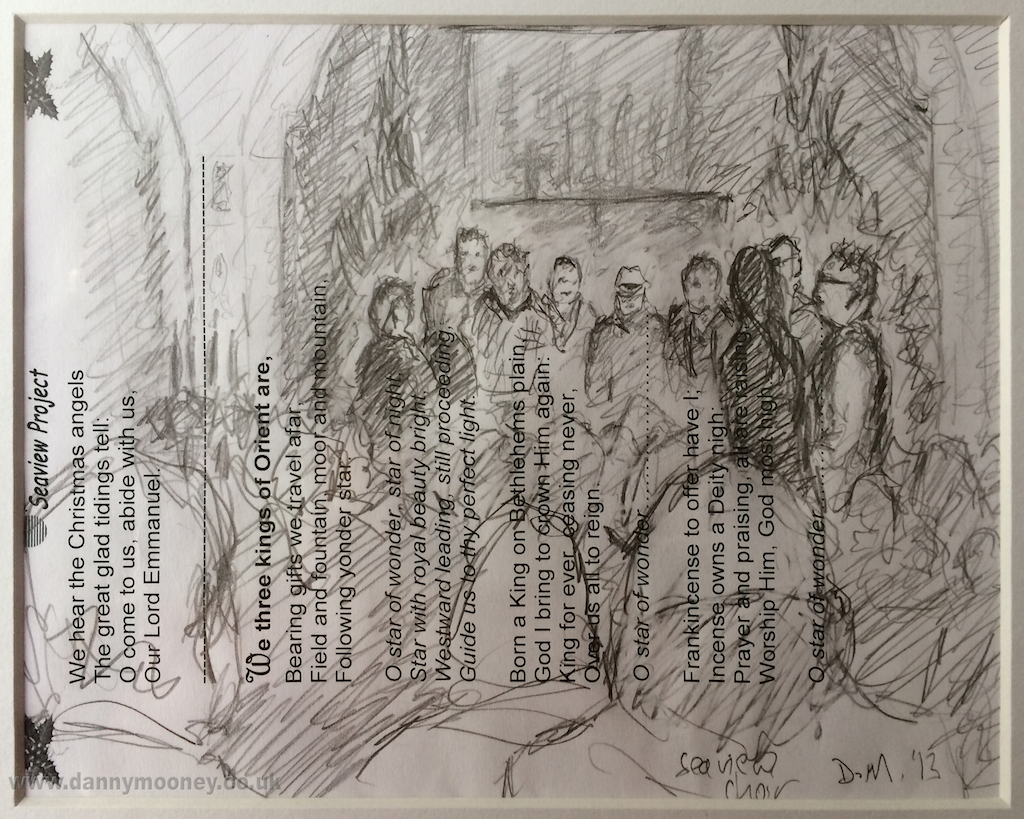 Seaview Project
We hear the Christmas angels
The great glad tidings tell:
O come to us, abide with us,
Our Lord Emmanuel.
We three kings of Orient are,
Bearing gifts we travel afar,
Field and fountain, moor and mountain,
Following yonder star.
O star of wonder, star of night,
Star with royal beauty bright,
Westward leading, still proceeding,
Guide us to thy perfect light.
Born a King on Bethlehems plain,
God I bring to crown Him again:
King for ever, ceasing never,
Over us all to reign.
O star of wonder...............
Frankincense to offer have I;
Incense owns a Deity nigh:
Prayer and praising, all are raising,
Worship Him, God most high.
O star of wonder...............
seaview
choir
D.M. '13
www.dannymooney.co.uk